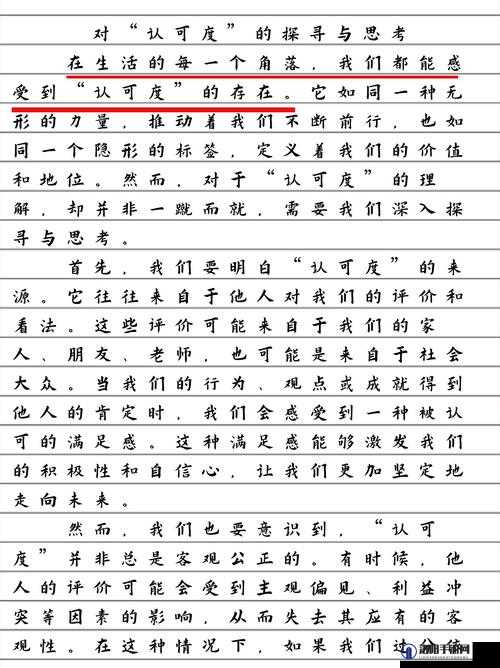 对“认可度”的探寻与思考
在生活的每一个角落，我们都能感
受到“认可度”的存在。它如同一种无
形的力量，推动着我们不断前行，也如
同一个隐形的标签，定义着我们的价值
和地位。然而，对于“认可度”的理
解，却并非一蹴而就，需要我们深入探
寻与思考。
首先，我们要明白“认可度”的来
源。它往往来自于他人对我们的评价和
看法。这些评价可能来自于我们的家
人、朋友、老师，也可能是来自于社会
大众。当我们的行为、观点或成就得到
他人的肯定时，我们会感受到一种被认
可的满足感。这种满足感能够激发我们
的积极性和自信心，让我们更加坚定地
走向未来。
然而，我们也要意识到，“认可
度”并非总是客观公正的。有时候，他
人的评价可能会受到主观偏见、利益冲
突等因素的影响，从而失去其应有的客
观性。在这种情况下，如果我们过